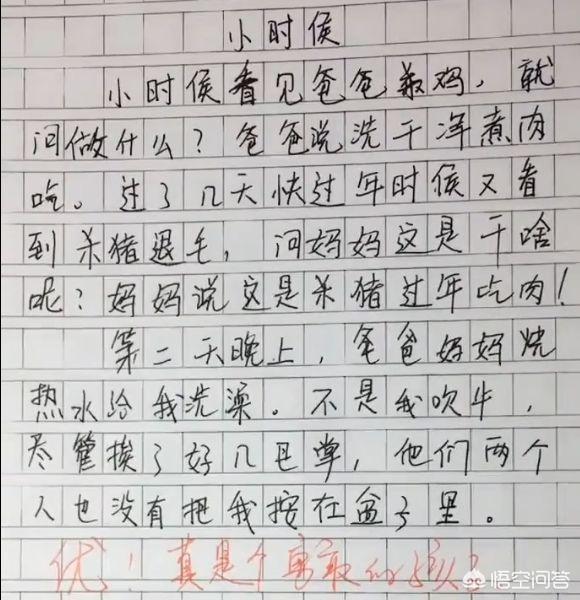 小时侯
小时侯看见爸爸杀鸡,就
问做什么?爸爸说洗干净煮肉
吃。过了几天快过年时侯又看
到杀猪退毛,问妈妈这是干啥
呢?妈妈说这是杀猪过年吃肉!
第二天晚上,爸爸妈妈烧
热水给我洗澡。不是我吹牛,
尽管挨了好几巴掌,他们两个
人也没有把我按在盆子里。
优!真是个勇敢的孩子
悟空问答